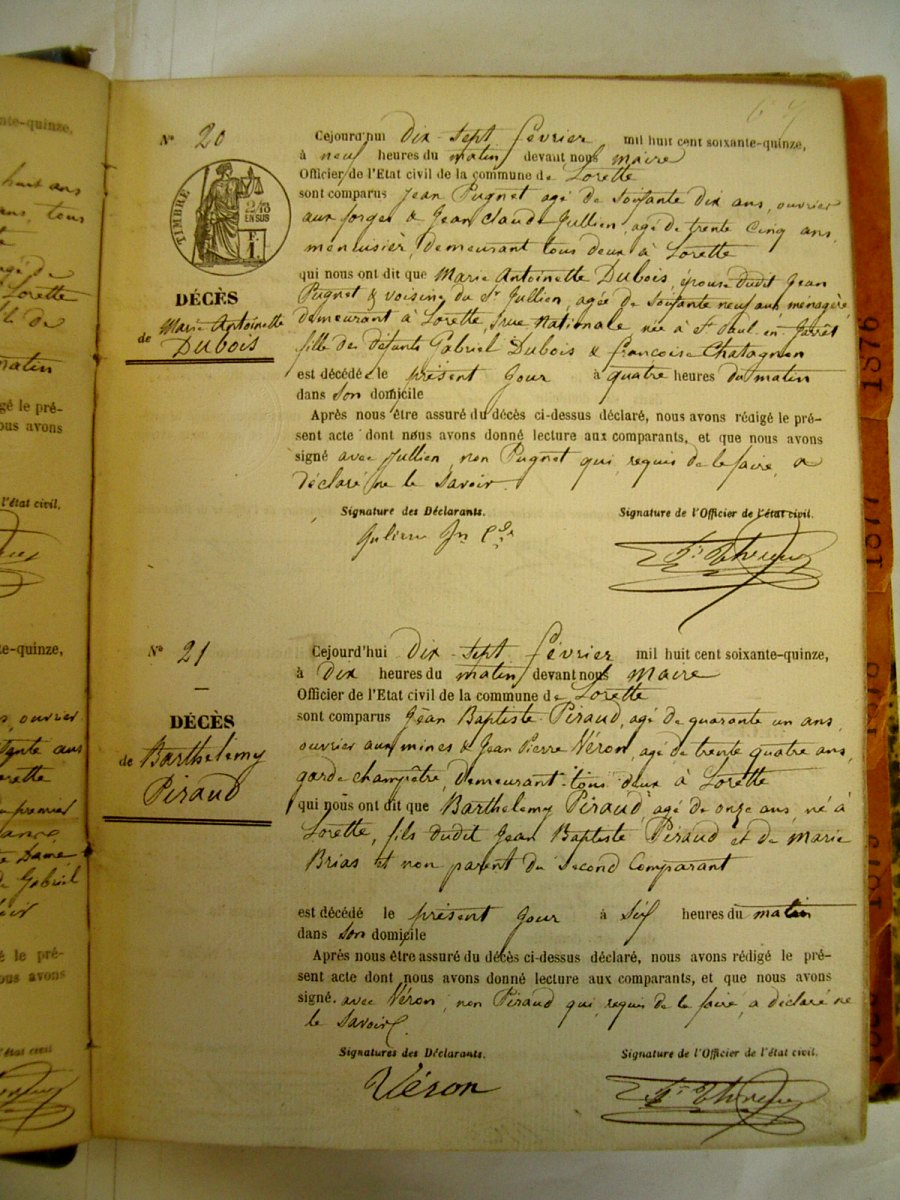 67
Nº 20
TIMBRE
2/10
EN SUS
F
1.
DÉCÈS
de Marie Antoinette
DUBois
Cejourd'hui dix sept février mil huit cent soixante-quinze,
à neuf heures du matin devant nous maire
Officier de l'Etat civil de la commune de Lorette
sont comparus Jean Pugnet agé de soixante dix ans, ouvrier
aux forges & Jean Claude Jullien, agé de trente cinq ans,
menuisier, demeurant tous deux à Lorette
qui nous ont dit que Marie Antoinette DUBois, épouse dudit Jean
Pugnet & voisine du Sr Jullien, agée de soixante neuf ans, ménagère,
demeurant à Lorette, rue Nationale, née à St Paul en Jarret
fille des défunts Gabriel DUBois & françoise Chatagnon
est décédée le présent jour à quatre heures du matin
dans son domicile
Après nous être assuré du décès ci-dessus déclaré, nous avons rédigé le pré-
sent acte dont nous avons donné lecture aux comparants, et que nous avons
signé avec Jullien, non Pugnet qui, requis de le faire, a
déclaré ne le savoir.
Signature des Déclarants. Signature de l'Officier de l'état civil.
Juliens Jn Cde
Nº 21
DÉCÈS
de Barthelemy
Piraud
Cejourd'hui dix sept février mil huit cent soixante-quinze,
à dix heures du matin devant nous maire
Officier de l'Etat civil de la commune de Lorette
sont comparus Jean Baptiste Piraud, agé de quarante un ans,
ouvrier aux mines & Jean Pierre Véron, agé de trente quatre ans,
garde champêtre, demeurant tous deux à Lorette
qui nous ont dit que Barthelemy Piraud, agé de onze ans, né à
Lorette, fils dudit Jean Baptiste Piraud et de Marie
Brias et non parent du second comparant
est décédé le présent jour à six heures du matin
dans son domicile
Après nous être assuré du décès ci-dessus déclaré, nous avons rédigé le pré-
sent acte dont nous avons donné lecture aux comparants, et que nous avons
signé avec Véron, non Piraud qui, requis de le faire, a déclaré ne
le savoir.
Signatures des Déclarants. Signature de l'Officier de l'état civil.
Véron
1876
1877
1878
1879